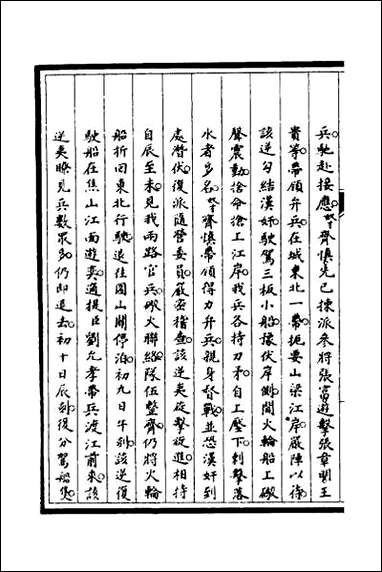 兵馳赴接應。奴才齊慎先已揀派參將張富遊擊張章閻王
貴等帶領弁兵在城東北一帶扼要山梁江岸嚴陣以待
該逆勾結漢奸駛駕三板小船豫伏岸側聞火輪船上礮
聲震動捨命搶上江岸。我兵各持刀矛自上壓下刺擊落
水者多名。奴才齊慎帶領得力弁兵親身督戰並恐漢奸到
處潛伏。復派隨營委員嚴密稽查。該逆夷旋擊旋進相持
自辰至未。見我兩路官兵礮火聯絡隊伍整齊仍將火輪
船折回東北行駛。退往圌山關停泊。初九日午刻該逆復
駛船在焦山江面遊奕。適提臣劉允孝帶兵渡江前來該
逆夷瞭見兵數眾多。仍即退去。初十日辰刻復分駕船隻